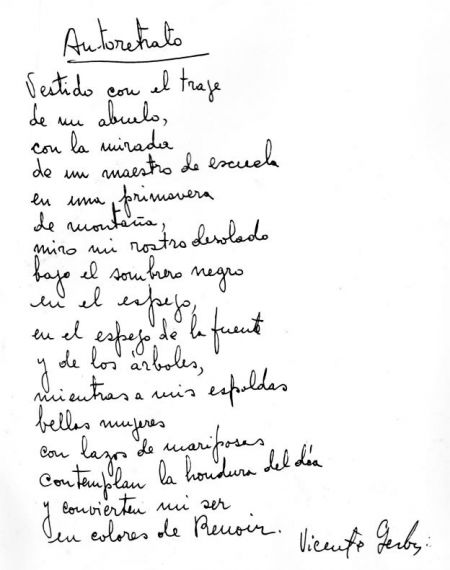 Autoretrato
Vestido con el traje
de un abuelo,
con la mirada
de un maestro de escuela
en una primavera
de montaña,
miro mi rostro desolado
bajo el sombrero negro
en el espejo,
en el espejo de la fuente
y de los árboles,
mientras a mis espaldas
bellas mujeres
con lazos de mariposas
contemplan la hondura del día
y convierten mi ser
en colores de Renoir.
Vicente Gerbasi